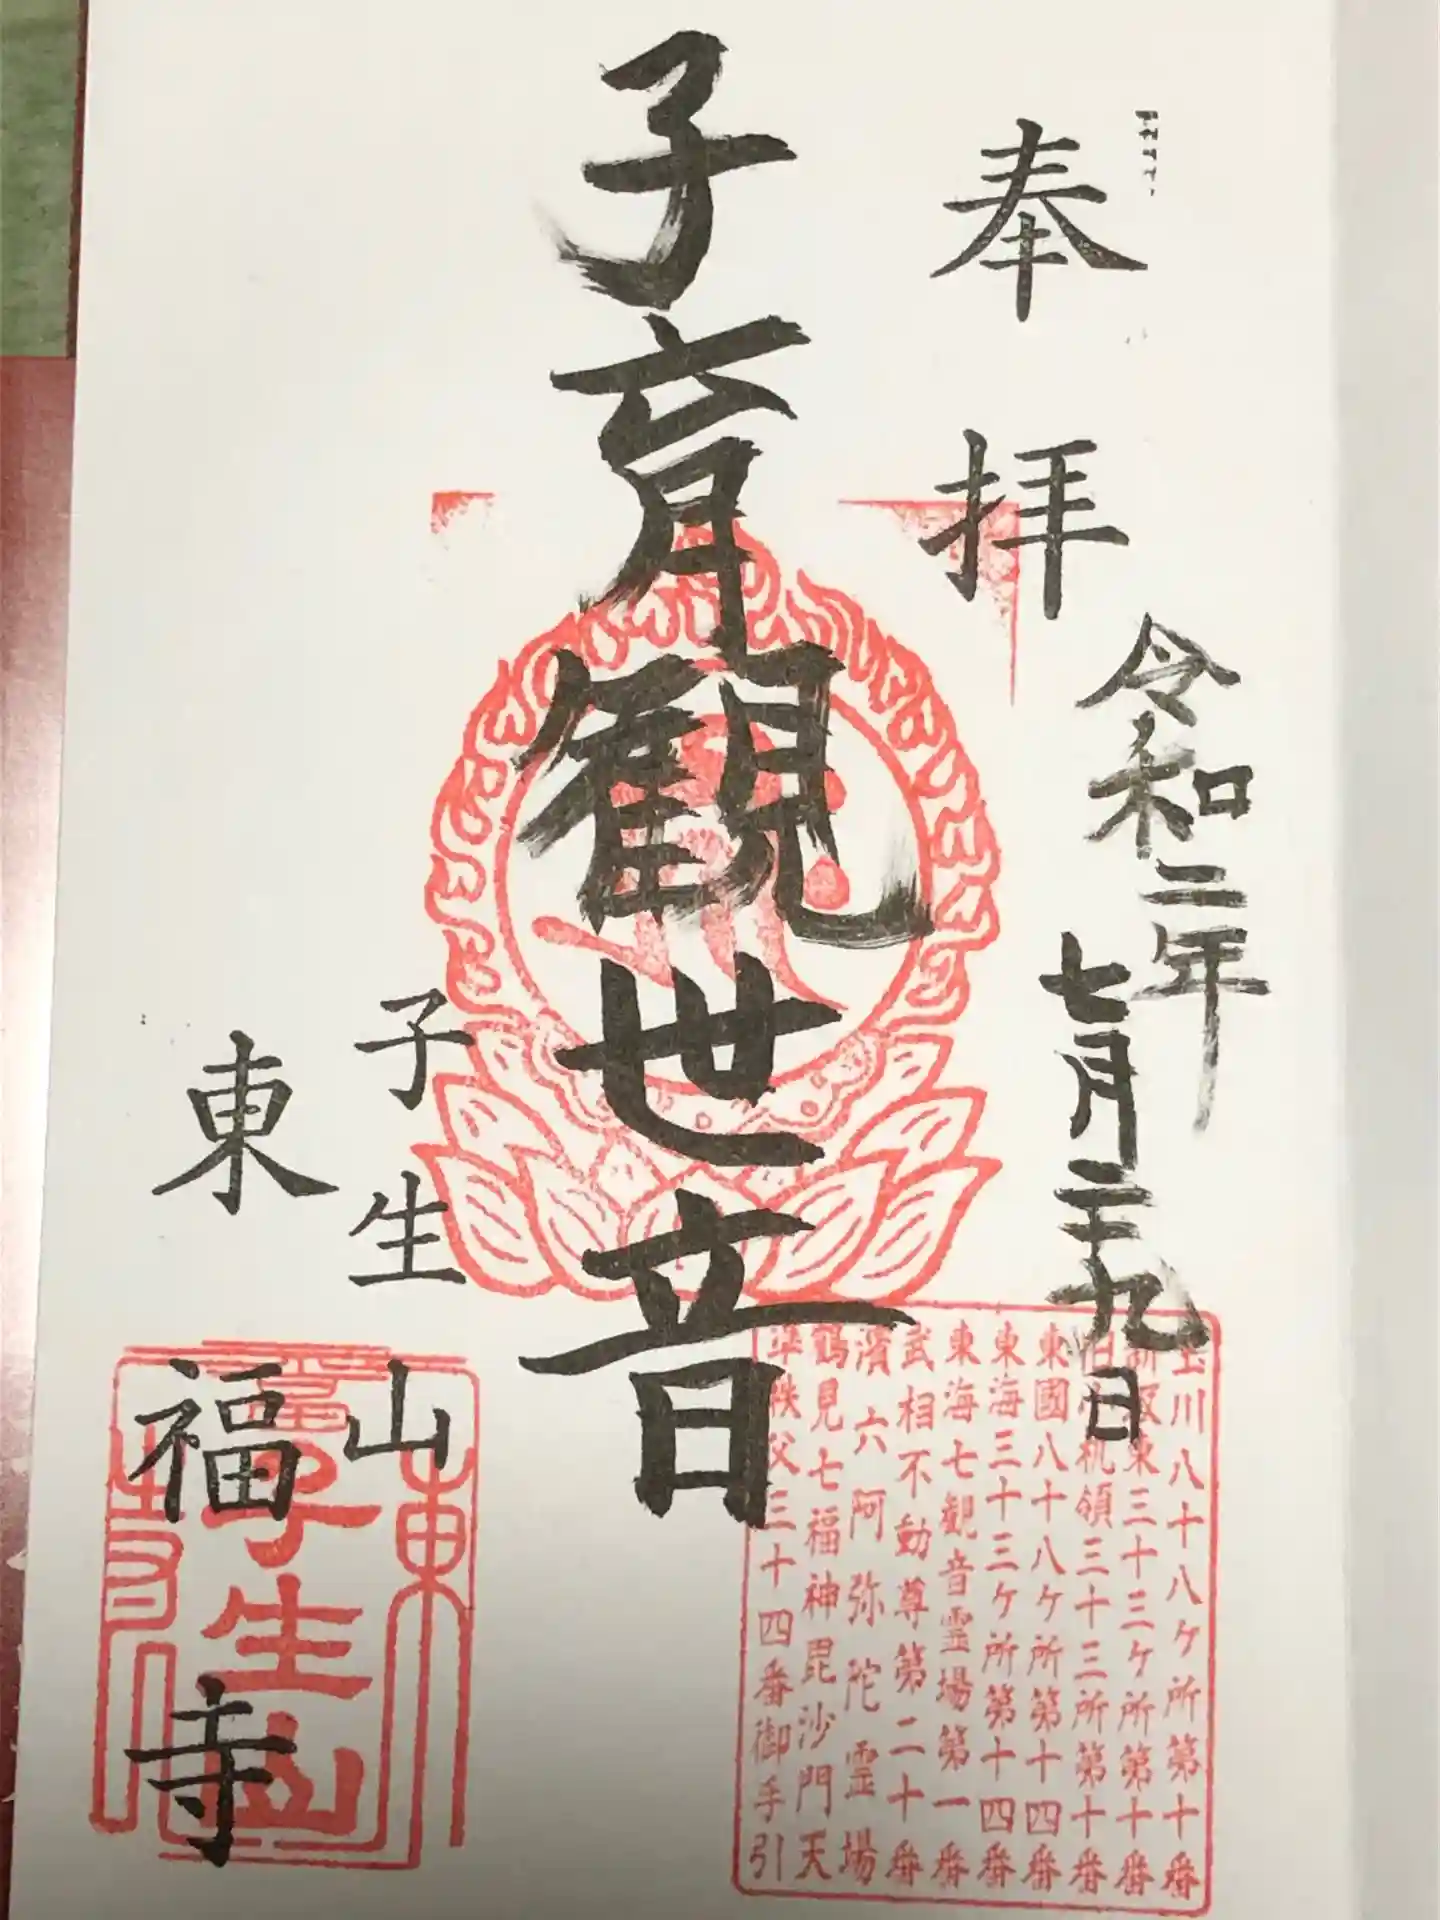 奉拝
令和二年
七月二十九日
子育観世音
子生山
東福寺
玉川八十八ケ所第十番
新坂東三十三ケ所第十番
旧小机領三十三所第十番
東國八十八ケ所第十四番
東海三十三ケ所第十四番
東海七観音霊場第一番
武相不動尊第二十番
濱六阿弥陀霊場
鶴見七福神毘沙門天
準秩父三十四番御手引
子生山